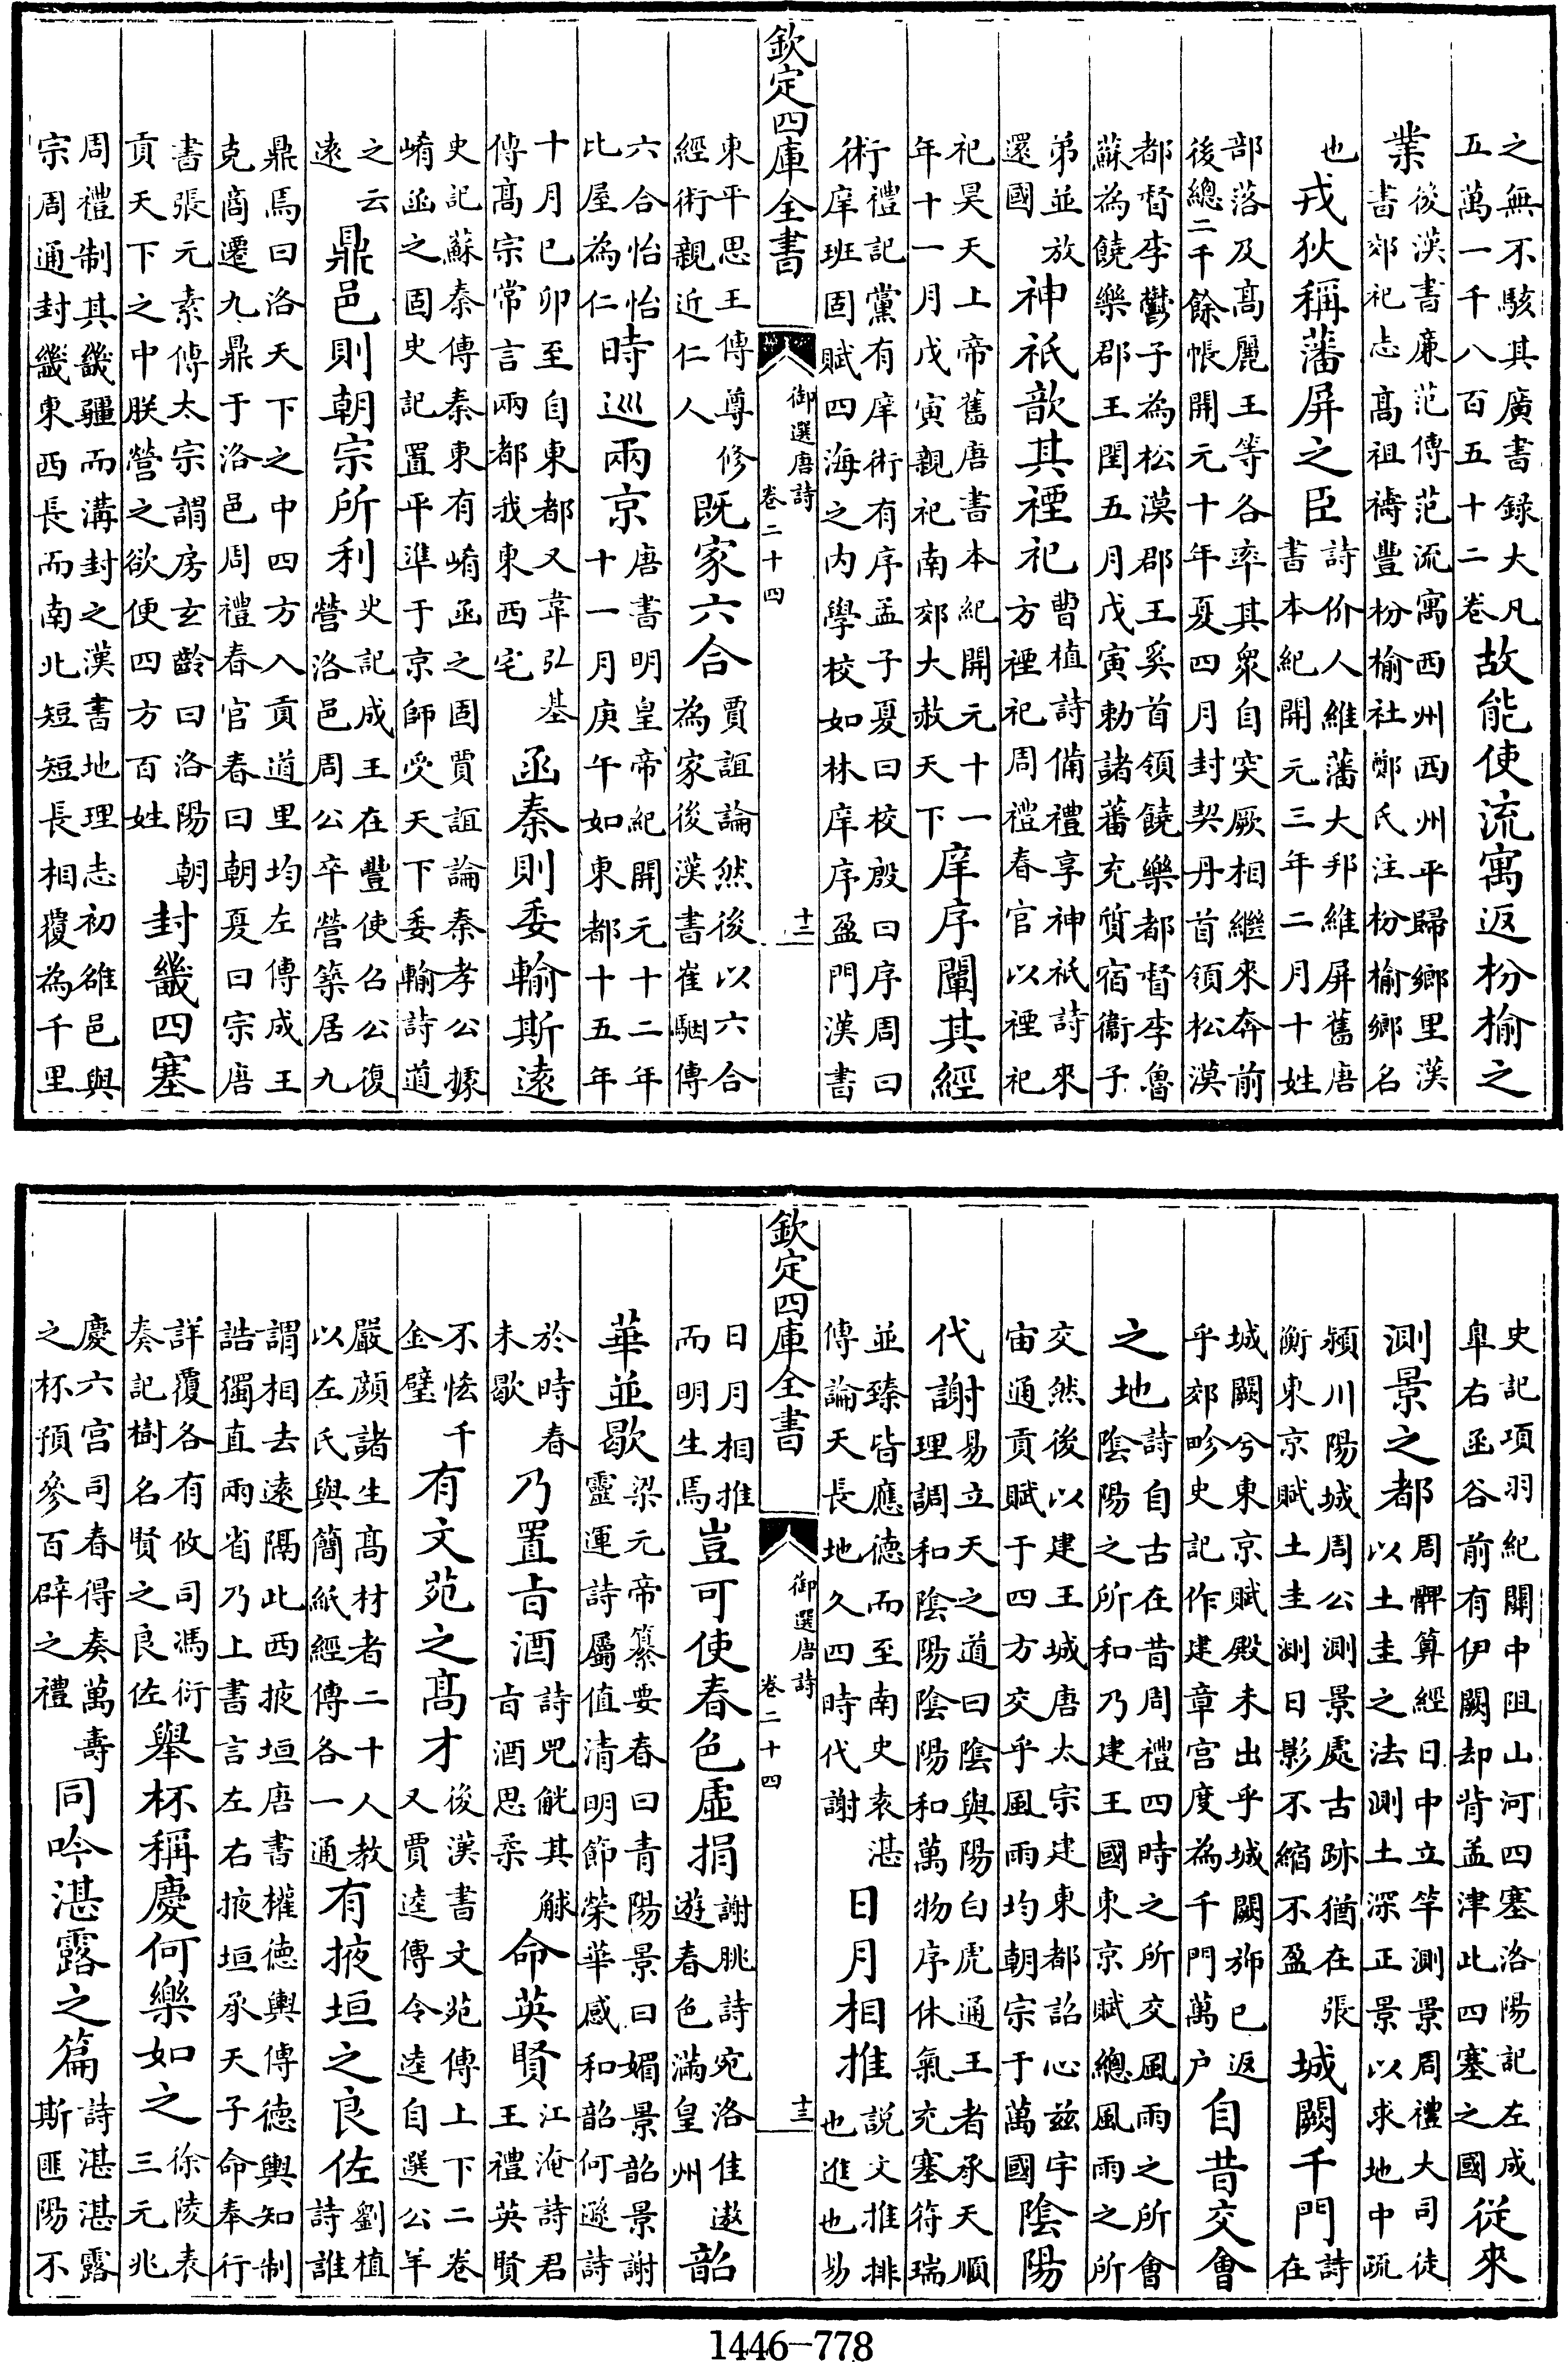 之無不駭其廣書録大凡
五萬一千八百五十二卷
故能使流寓返枌榆之
業
後漢書廉范傳范流寓西州西州平歸鄉里漢
書郊祀志高祖禱豐枌榆社鄭氏注枌榆鄉名
也
戎狄稱藩屏之臣
詩价人維藩大邦維屏舊唐
書本紀開元三年二月十姓
部落及高麗王等各率其衆自突厥相繼來奔前
後總二千餘帳開元十年夏四月封契丹首領松漠
都督李鬱子為松漠郡王奚首領饒樂都督李魯
蘇為饒樂郡王閏五月戊寅勅諸蕃充質宿衞子
弟並放
還國
神祇歆其禋祀
曹植詩備禮享神祇詩來
方禋祀周禮春官以禋祀
祀昊天上帝舊唐書本紀開元十一
年十一月戊寅親祀南郊大赦天下
庠序闡其經
術
禮記黨有庠術有序孟子夏曰校殷曰序周曰
庠班固賦四海之内學校如林庠序盈門漢書
欽定四庫全書
御選唐詩
卷二十四
十二
東平思王傳尊修
經術親近仁人
既家六合
賈誼論然後以六合
為家後漢書崔駰傳
六合怡怡
比屋為仁
時巡兩京
唐書明皇帝紀開元十二年
十一月庚午如東都十五年
十月已卯至自東都又韋弘基
傳高宗常言兩都我東西宅
函秦則委輸斯遠
史記蘇秦傳秦東有崤函之固賈誼論秦孝公據
崤函之固史記置平準于京師受天下委輸詩道
之云
遠
鼎邑則朝宗所利
史記成王在豐使召公復
營洛邑周公卒營築居九
鼎焉曰洛天下之中四方入貢道里均左傳成王
克商遷九鼎于洛邑周禮春官春曰朝夏曰宗唐
書張元素傳太宗謂房玄齡曰洛陽朝
貢天下之中朕營之欲便四方百姓
封畿四塞
周禮制其畿疆而溝封之漢書地理志初雒邑與
宗周通封畿東西長而南北短短長相覆為千里
史記項羽紀關中阻山河四塞洛陽記左成
臯右函谷前有伊闕却背孟津此四塞之國
從來
測景之都
周髀算經日中立竿測景周禮大司徒
以土圭之法測土深正景以求地中疏
潁川陽城周公測景處古跡猶在張
衡東京賦土圭測日影不縮不盈
城闕千門
詩
在
城闕兮東京賦殿未出乎城闕斾已返
乎郊畛史記作建章宫度為千門萬户
自昔交會
之地
詩自古在昔周禮四時之所交風雨之所會
陰陽之所和乃建王國東京賦總風雨之所
交然後以建王城唐太宗建東都詔心兹宇
宙通貢賦于四方交乎風雨均朝宗于萬國
陰陽
代謝
易立天之道曰陰與陽白虎通王者承天順
理調和陰陽陰陽和萬物序休氣充塞符瑞
並臻皆應德而至南史袁湛
傳論天長地久四時代謝
日月相推
說文推排
也進也易
欽定四庫全書
御選唐詩
卷二十四
十三
日月相推
而明生焉
豈可使春色虛捐
謝朓詩宛洛佳遨
遊春色滿皇州
韶
華並歇
梁元帝纂要春曰青陽景曰媚景韶景謝
靈運詩屬值清明節榮華感和韶何遜詩
於時春
未歇
乃置㫖酒
詩兕觥其觩
㫖酒思柔
命英賢
江淹詩君
王禮英賢
不恡千
金璧
有文苑之高才
後漢書文苑傳上下二卷
又賈逵傳令逵自選公羊
嚴顔諸生高材者二十人教
以左氏與簡紙經傳各一通
有掖垣之良佐
劉植
詩誰
謂相去遠隔此西掖垣唐書權德輿傳德輿知制
誥獨直兩省乃上書言左右掖垣承天子命奉行
詳覆各有攸司馮衍
奏記樹名賢之良佐
舉杯稱慶何樂如之
徐陵表
三元兆
慶六宫司春得奏萬壽
之杯預參百辟之禮
同吟湛露之篇
詩湛湛露
斯匪陽不
1446-778